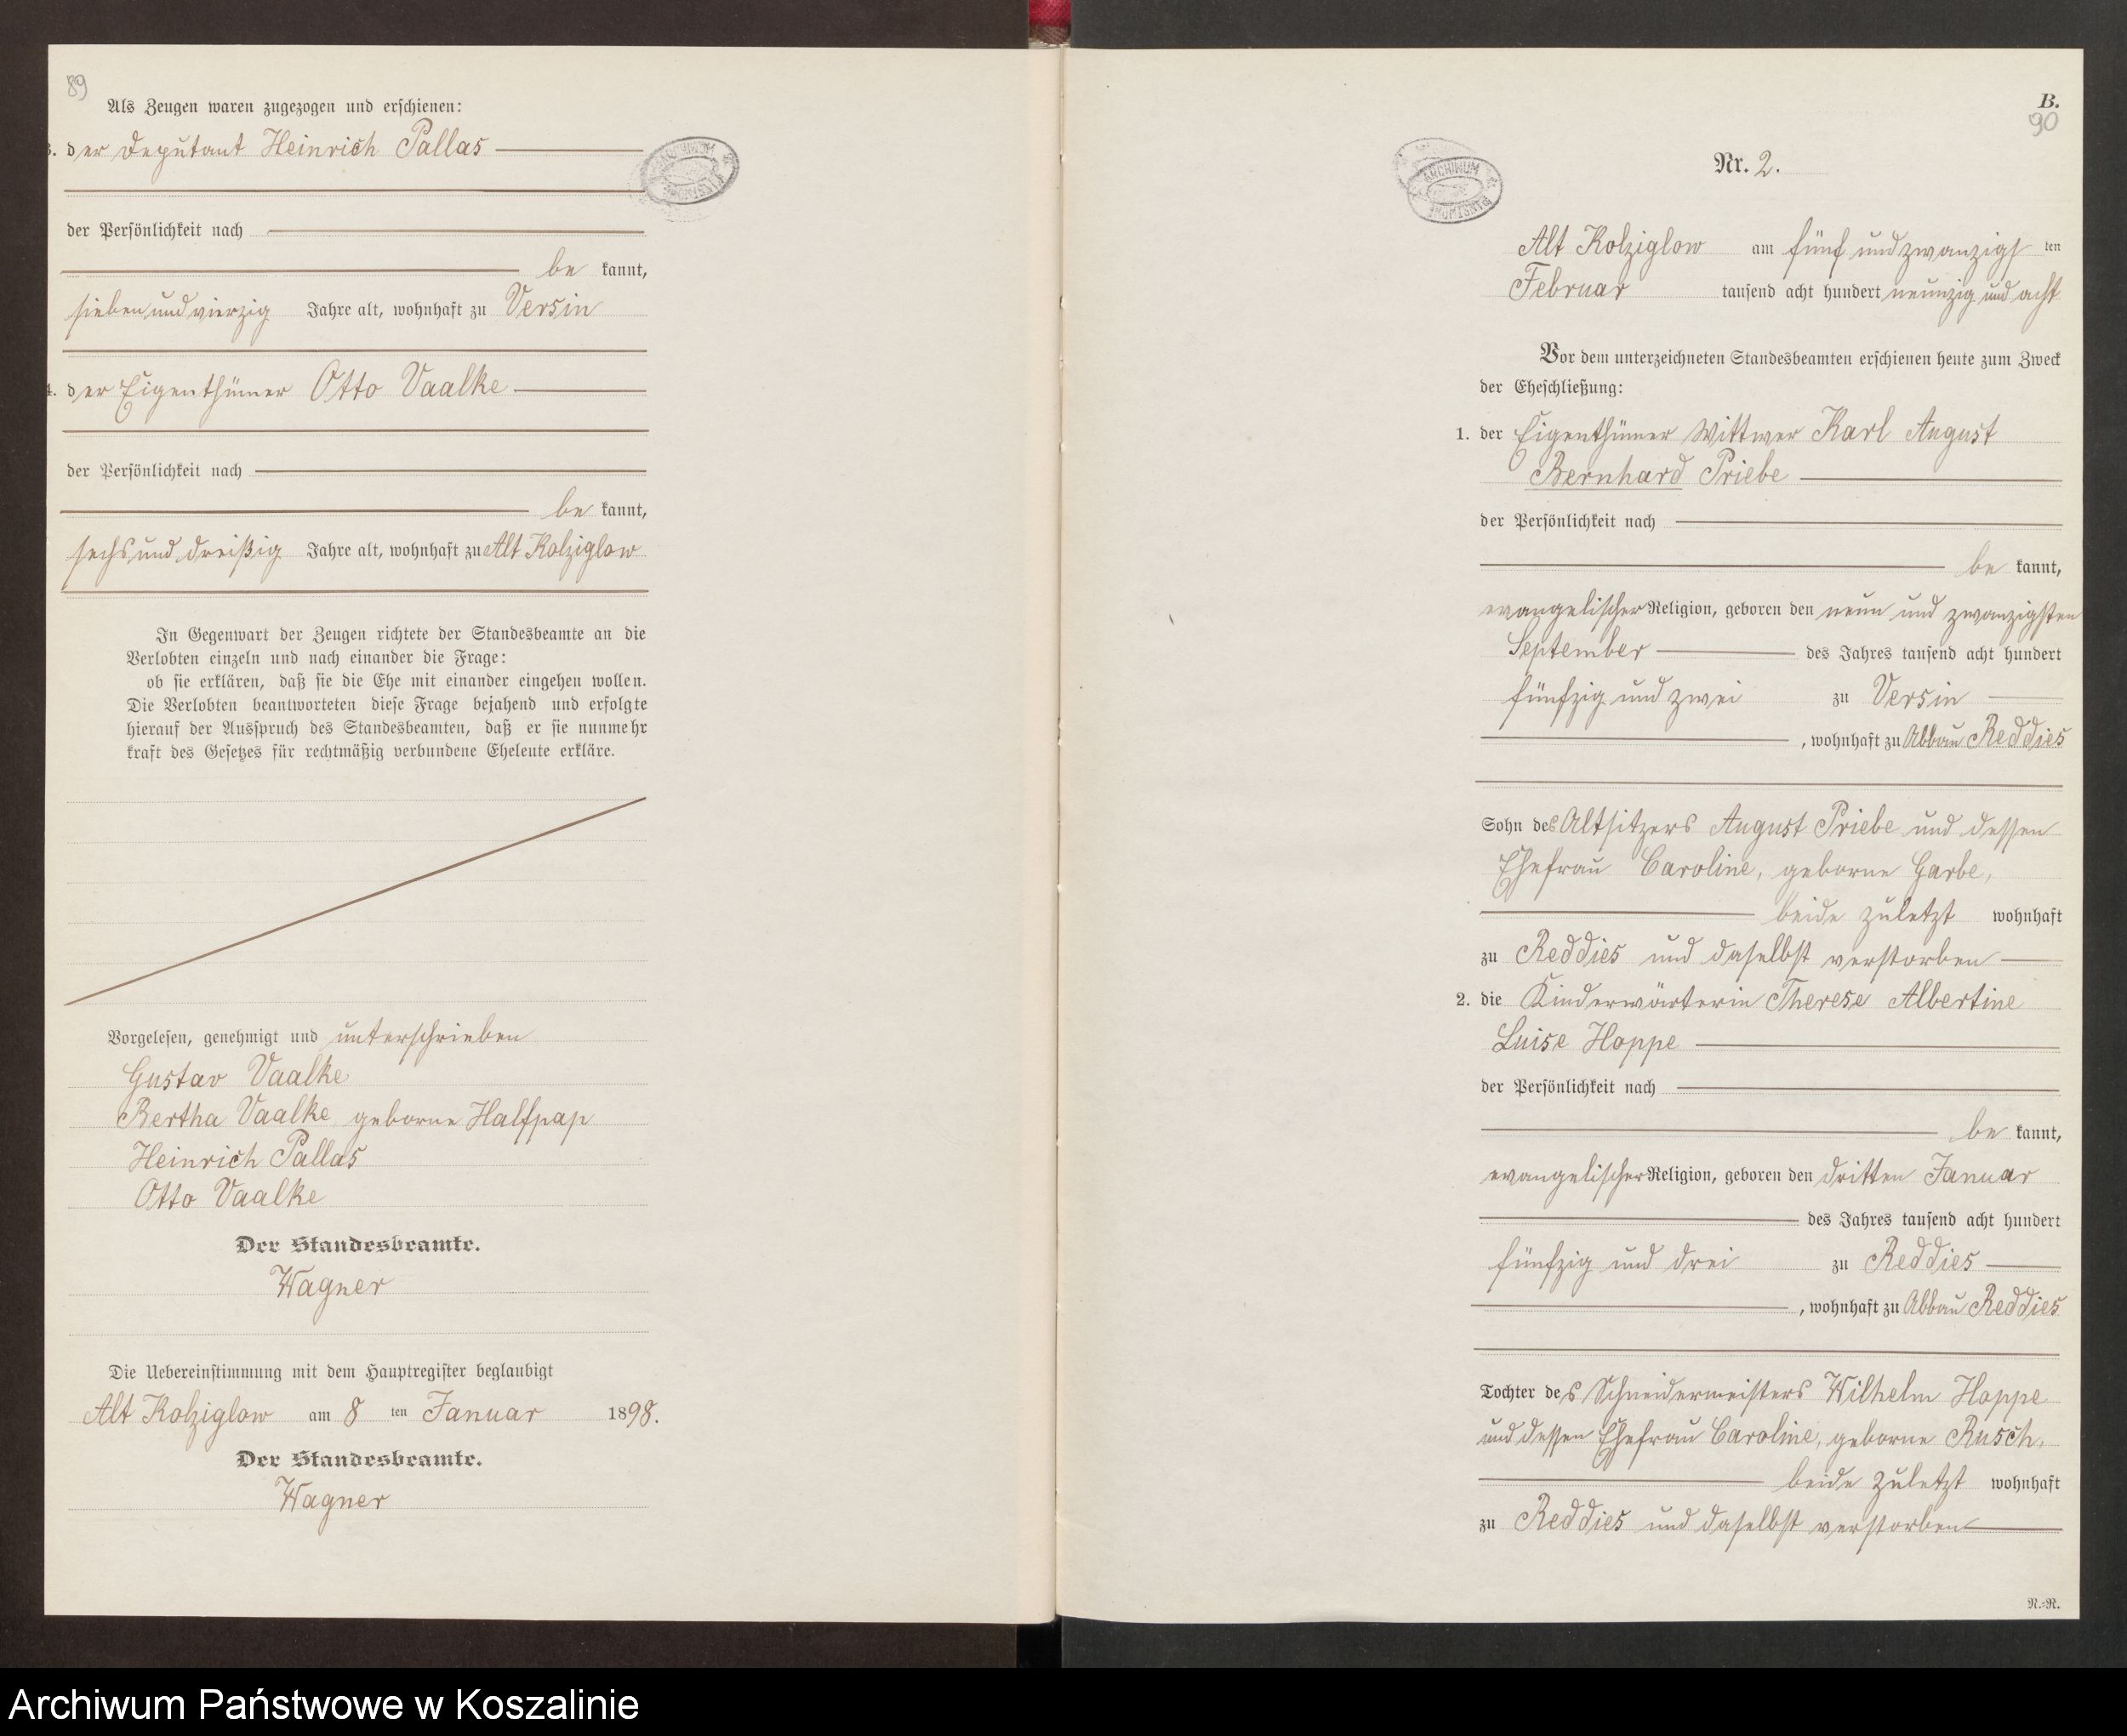 89
Als Zeugen waren zugezogen und erschienen:
3. der Deputant Heinrich Pallas
der Persönlichkeit nach
be kannt,
sieben und vierzig Jahre alt, wohnhaft zu Versin
4. der Eigenthümer Otto Vaalke
der Persönlichkeit nach
be kannt,
sechs und dreißig Jahre alt, wohnhaft zu Alt Kolziglow
In Gegenwart der Zeugen richtete der Standesbeamte an die
Verlobten einzeln und nach einander die Frage:
ob sie erklären, daß sie die Ehe mit einander eingehen wollen.
Die Verlobten beantworteten diese Frage bejahend und erfolgte
hierauf der Ausspruch des Standesbeamten, daß er sie nunmehr
kraft des Gesetzes für rechtmäßig verbundene Eheleute erkläre.
Vorgelesen, genehmigt und unterschrieben
Gustav Vaalke
Bertha Vaalke geborne Halfpap
Heinrich Pallas
Otto Vaalke
Der Standesbeamte.
Wagner
Die Uebereinstimmung mit dem Hauptregister beglaubigt
Alt Kolziglow am 8 ten Januar 1898.
Der Standesbeamte.
Wagner
ARCHIWUM
B.
90
ARCHIWUM
PAŃSTWOWE
Nr. 2.
Alt Kolziglow am fünf und zwanzigs ten
Februar tausend acht hundert neunzig und acht
Vor dem unterzeichneten Standesbeamten erschienen heute zum Zweck
der Eheschließung:
1. der Eigenthümer Wittwer Karl August
Bernhard Priebe
der Persönlichkeit nach
be kannt,
evangelischer Religion, geboren den neun und zwanzigsten
September des Jahres tausend acht hundert
fünfzig und zwei zu Versin
, wohnhaft zu Abbau Reddies
Sohn des Altsitzers August Priebe und dessen
Ehefrau Caroline, geborne Garbe,
beide zuletzt wohnhaft
zu Reddies und daselbst verstorben
2. die Kinderwärterin Therese Albertine
Luise Hoppe
der Persönlichkeit nach
be kannt,
evangelischer Religion, geboren den dritten Januar
des Jahres tausend acht hundert
fünfzig und drei zu Reddies
, wohnhaft zu Abbau Reddies
Tochter des Schneidermeisters Wilhelm Hoppe
und dessen Ehefrau Caroline, geborne Rusch,
beide zuletzt wohnhaft
zu Reddies und daselbst verstorben
R.-R.
Archiwum Państwowe w Koszalinie